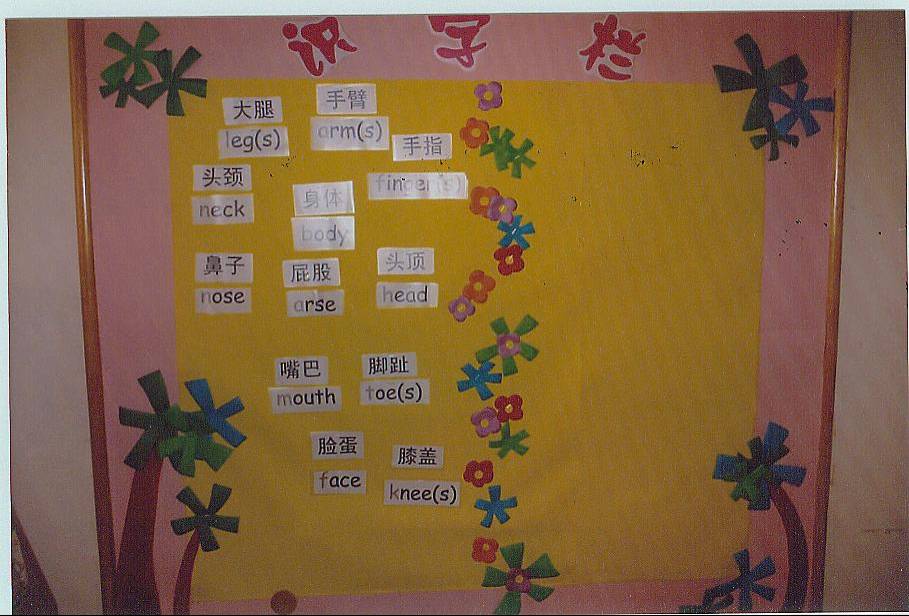 识字栏
大腿
leg(s)
手臂
arm(s)
手指
finger(s)
头颈
neck
身体
body
鼻子
nose
屁股
arse
头顶
head
嘴巴
mouth
脚趾
toe(s)
脸蛋
face
膝盖
knee(s)